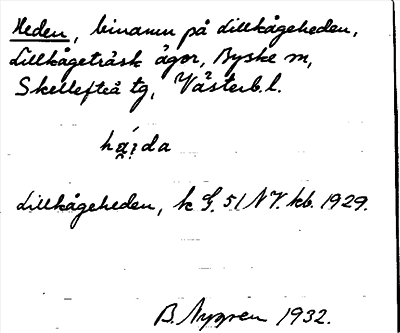 Heden, binamn på Lillkågeheden,
Lillkågeträsk ägor, Byske m,
Skellefteå tg, Västerb.l.
Lillkågeheden, k G. 51 NV. kb. 1929.
B. Nygren 1932.